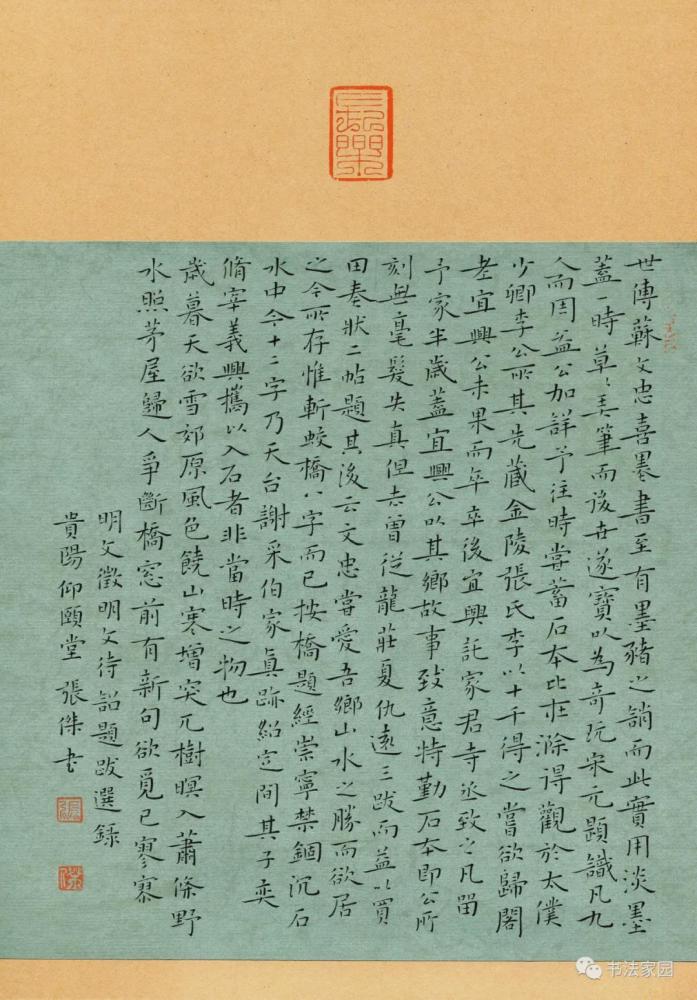 世傳蘇文忠喜墨書至有墨豬之誚而此實用淡墨
蓋一時草草弄筆而後世遂寶以為奇玩宋元題識凡九
人而周益公加詳予往時嘗蓄石本比在滁得觀於太僕
少卿李公所其先藏金陵張氏李以十千得之嘗欲歸閣
老宜興公未果而卒卒後宜興託家君寺丞致之凡留
予家半歲蓋宜興公以其鄉故事致意特勤石本即公所
刻無毫髮失真但去曾從龍莊夏仇遠三跋而益以買
田奏狀二帖題其後云文忠嘗愛吾鄉山水之勝而欲居
之今所存惟斬蛟橋八字而已按橋題經崇寧禁錮沉石
水中今十二字乃天台謝采伯家真跡紹定間其子奕
脩宰義興攜以入石者非當時之物也
歲暮天欲雪郊原風色饒山寒增突兀樹暝入蕭條野
水照茅屋歸人爭斷橋窓前有新句欲覓已寥寥
明文徵明文待詔題跋選錄
貴陽仰頤堂張傑书
書法家园